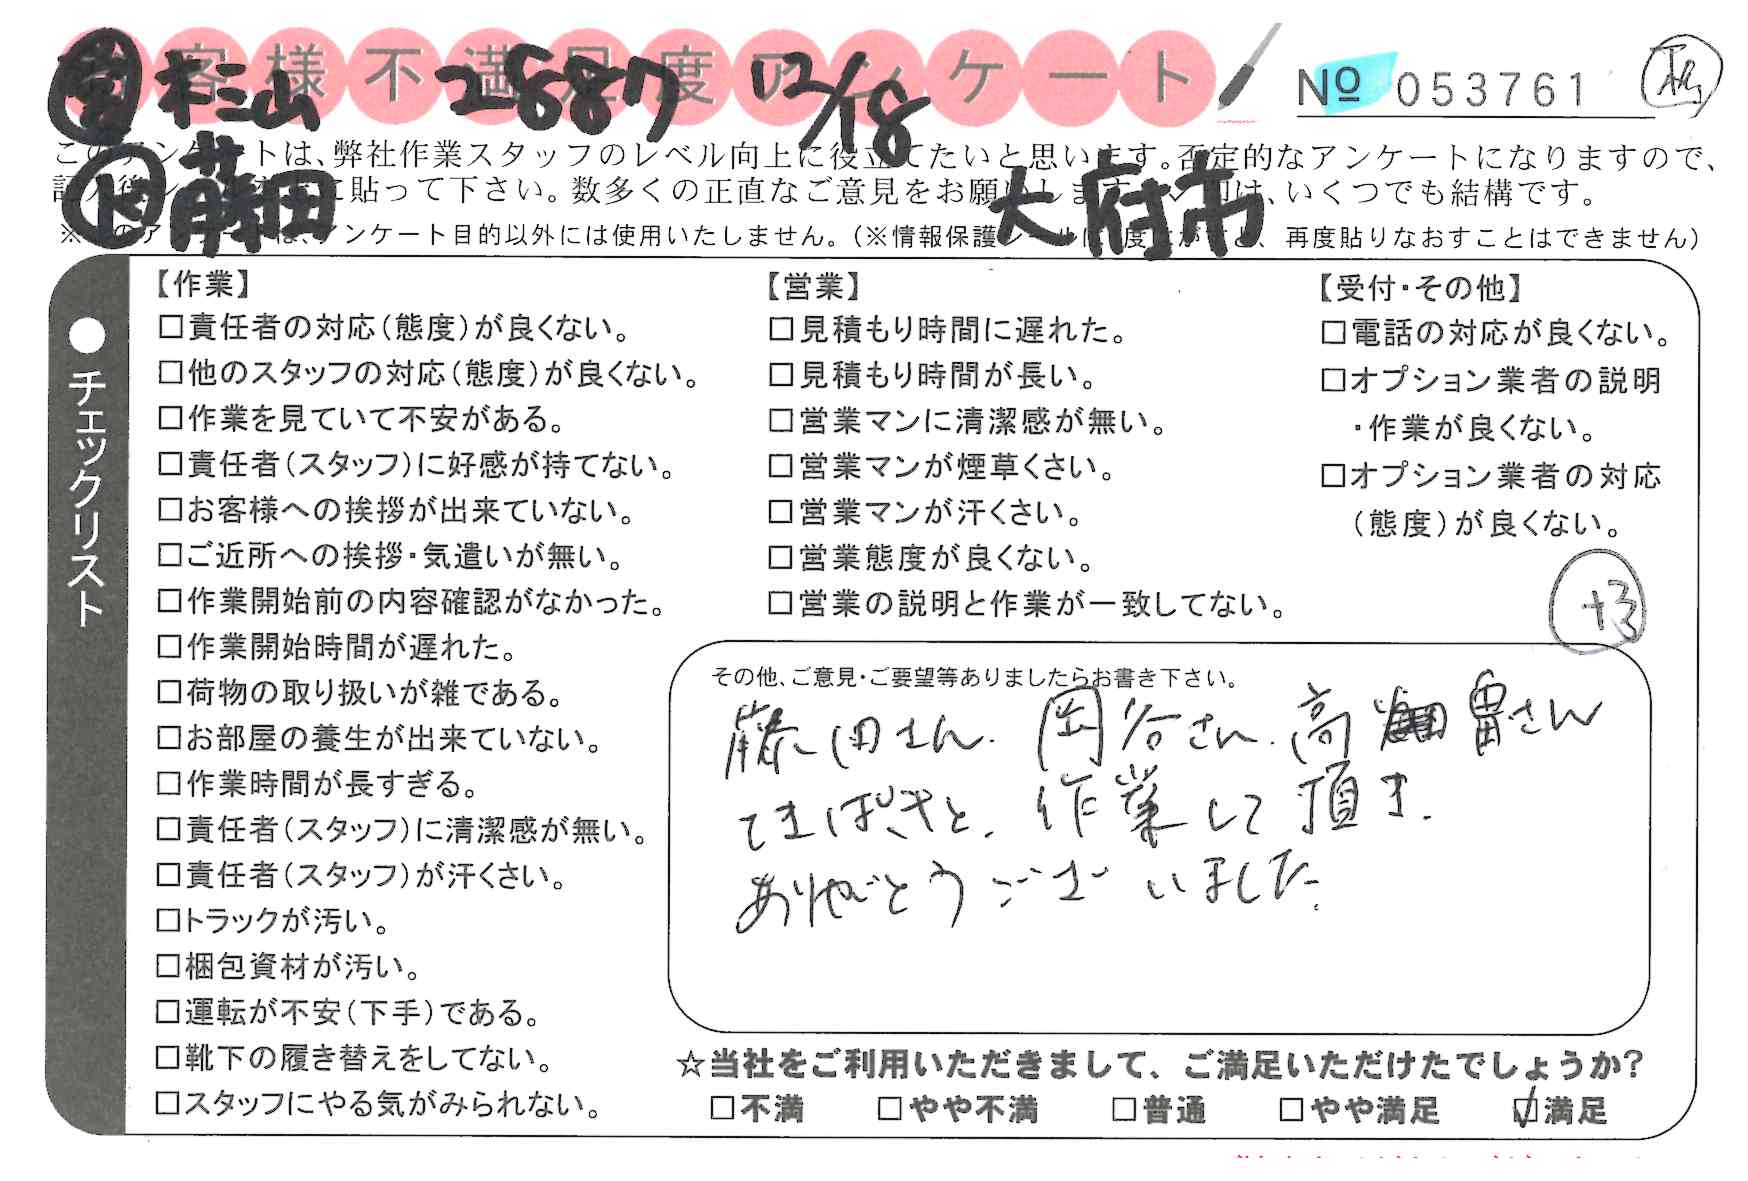 お客様不満足度アンケート
No 053761
営 杉山 2887 12/18
作 藤田 大府市
このアンケートは、弊社作業スタッフのレベル向上に役立てたいと思います。否定的なアンケートになりますので、
に貼って下さい。数多くの正直なご意見をお願いします。 は、いくつでも結構です。
アンケート目的以外には使用いたしません。(※情報保護シールは 再度貼りなおすことはできません)
●チェックリスト
【作業】
□責任者の対応(態度)が良くない。
□他のスタッフの対応(態度)が良くない。
□作業を見ていて不安がある。
□責任者(スタッフ)に好感が持てない。
□お客様への挨拶が出来ていない。
□ご近所への挨拶・気遣いが無い。
□作業開始前の内容確認がなかった。
□作業開始時間が遅れた。
□荷物の取り扱いが雑である。
□お部屋の養生が出来ていない。
□作業時間が長すぎる。
□責任者(スタッフ)に清潔感が無い。
□責任者(スタッフ)が汗くさい。
□トラックが汚い。
□梱包資材が汚い。
□運転が不安(下手)である。
□靴下の履き替えをしてない。
□スタッフにやる気がみられない。
【営業】
□見積もり時間に遅れた。
□見積もり時間が長い。
□営業マンに清潔感が無い。
□営業マンが煙草くさい。
□営業マンが汗くさい。
□営業態度が良くない。
□営業の説明と作業が一致してない。
【受付・その他】
□電話の対応が良くない。
□オプション業者の説明
・作業が良くない。
□オプション業者の対応
(態度)が良くない。
+3
その他、ご意見・ご要望等ありましたらお書き下さい。
藤田さん、岡谷さん、高畠さん
てきぱきと、作業して頂き、
ありがとうございました。
☆当社をご利用いただきまして、ご満足いただけたでしょうか?
□不満 □やや不満 □普通 □やや満足 ☑満足